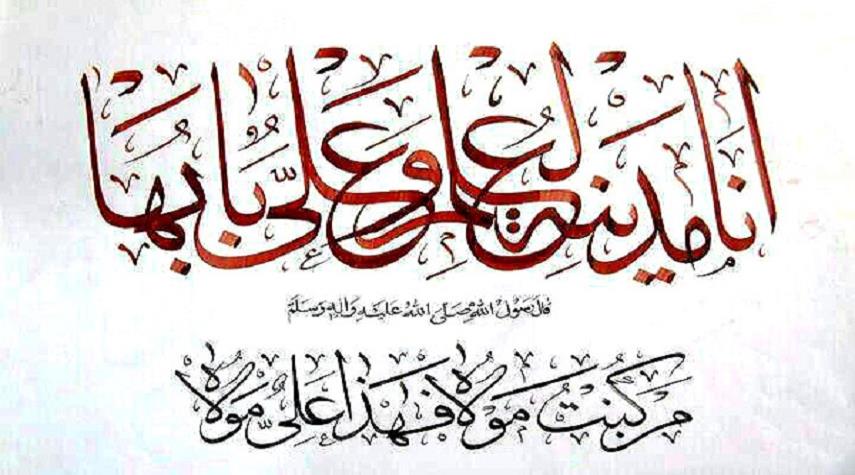 انا مدينة العلم وعلي بابها
قال رسول الله صلى الله عليه واله وسلم
من كنت مولاه فهذا علي مولاه